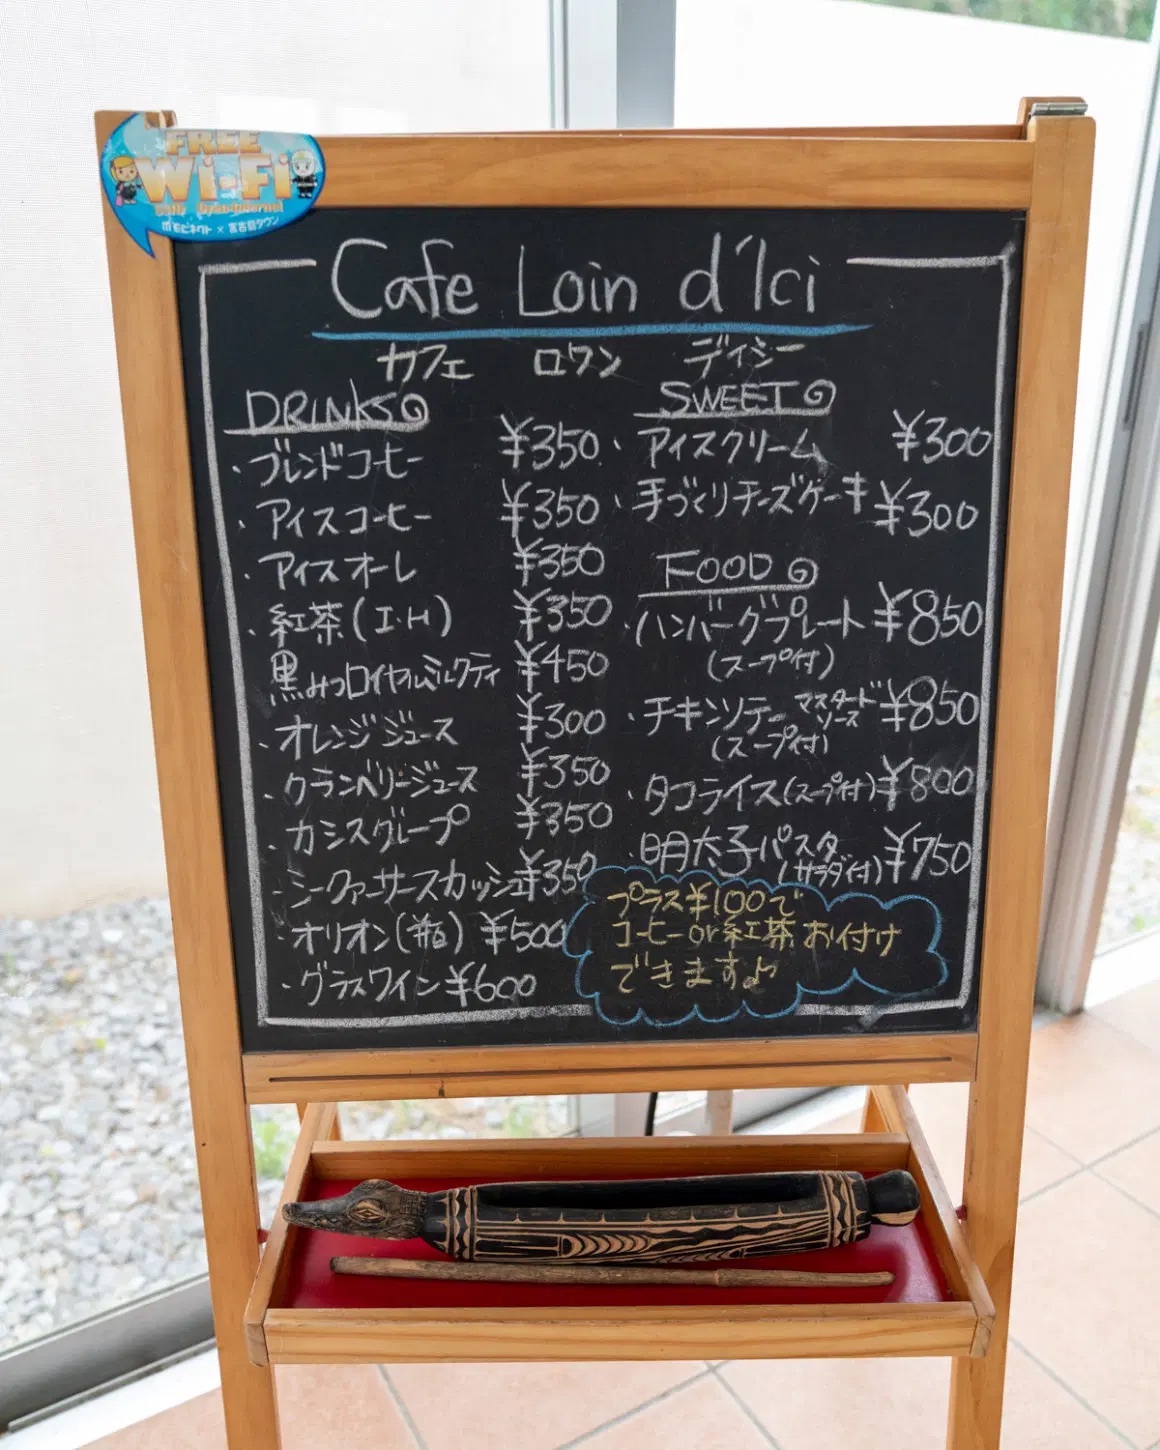 FREE
Wi-Fi
MEコネクト × 宮古島タウン
Cafe Loin d'Ici
カフェ ロワン ディシー
DRINKS
・ブレンドコーヒー ¥350
・アイスコーヒー ¥350
・アイスオーレ ¥350
・紅茶(I・H) ¥350
黒みつロイヤルミルクティ ¥450
・オレンジジュース ¥300
・クランベリージュース ¥350
・カシスグレープ ¥350
・シークァーサースカッシュ ¥350
・オリオン(瓶) ¥500
・グラスワイン ¥600
SWEET
・アイスクリーム ¥300
・手づくりチーズケーキ ¥300
FOOD
・ハンバーグプレート ¥850
(スープ付)
・チキンソテー マスタードソース ¥850
(スープ付)
・タコライス(スープ付) ¥800
・明太子パスタ ¥750
(サラダ付)
プラス¥100で
コーヒーor紅茶 お付け
できます♪